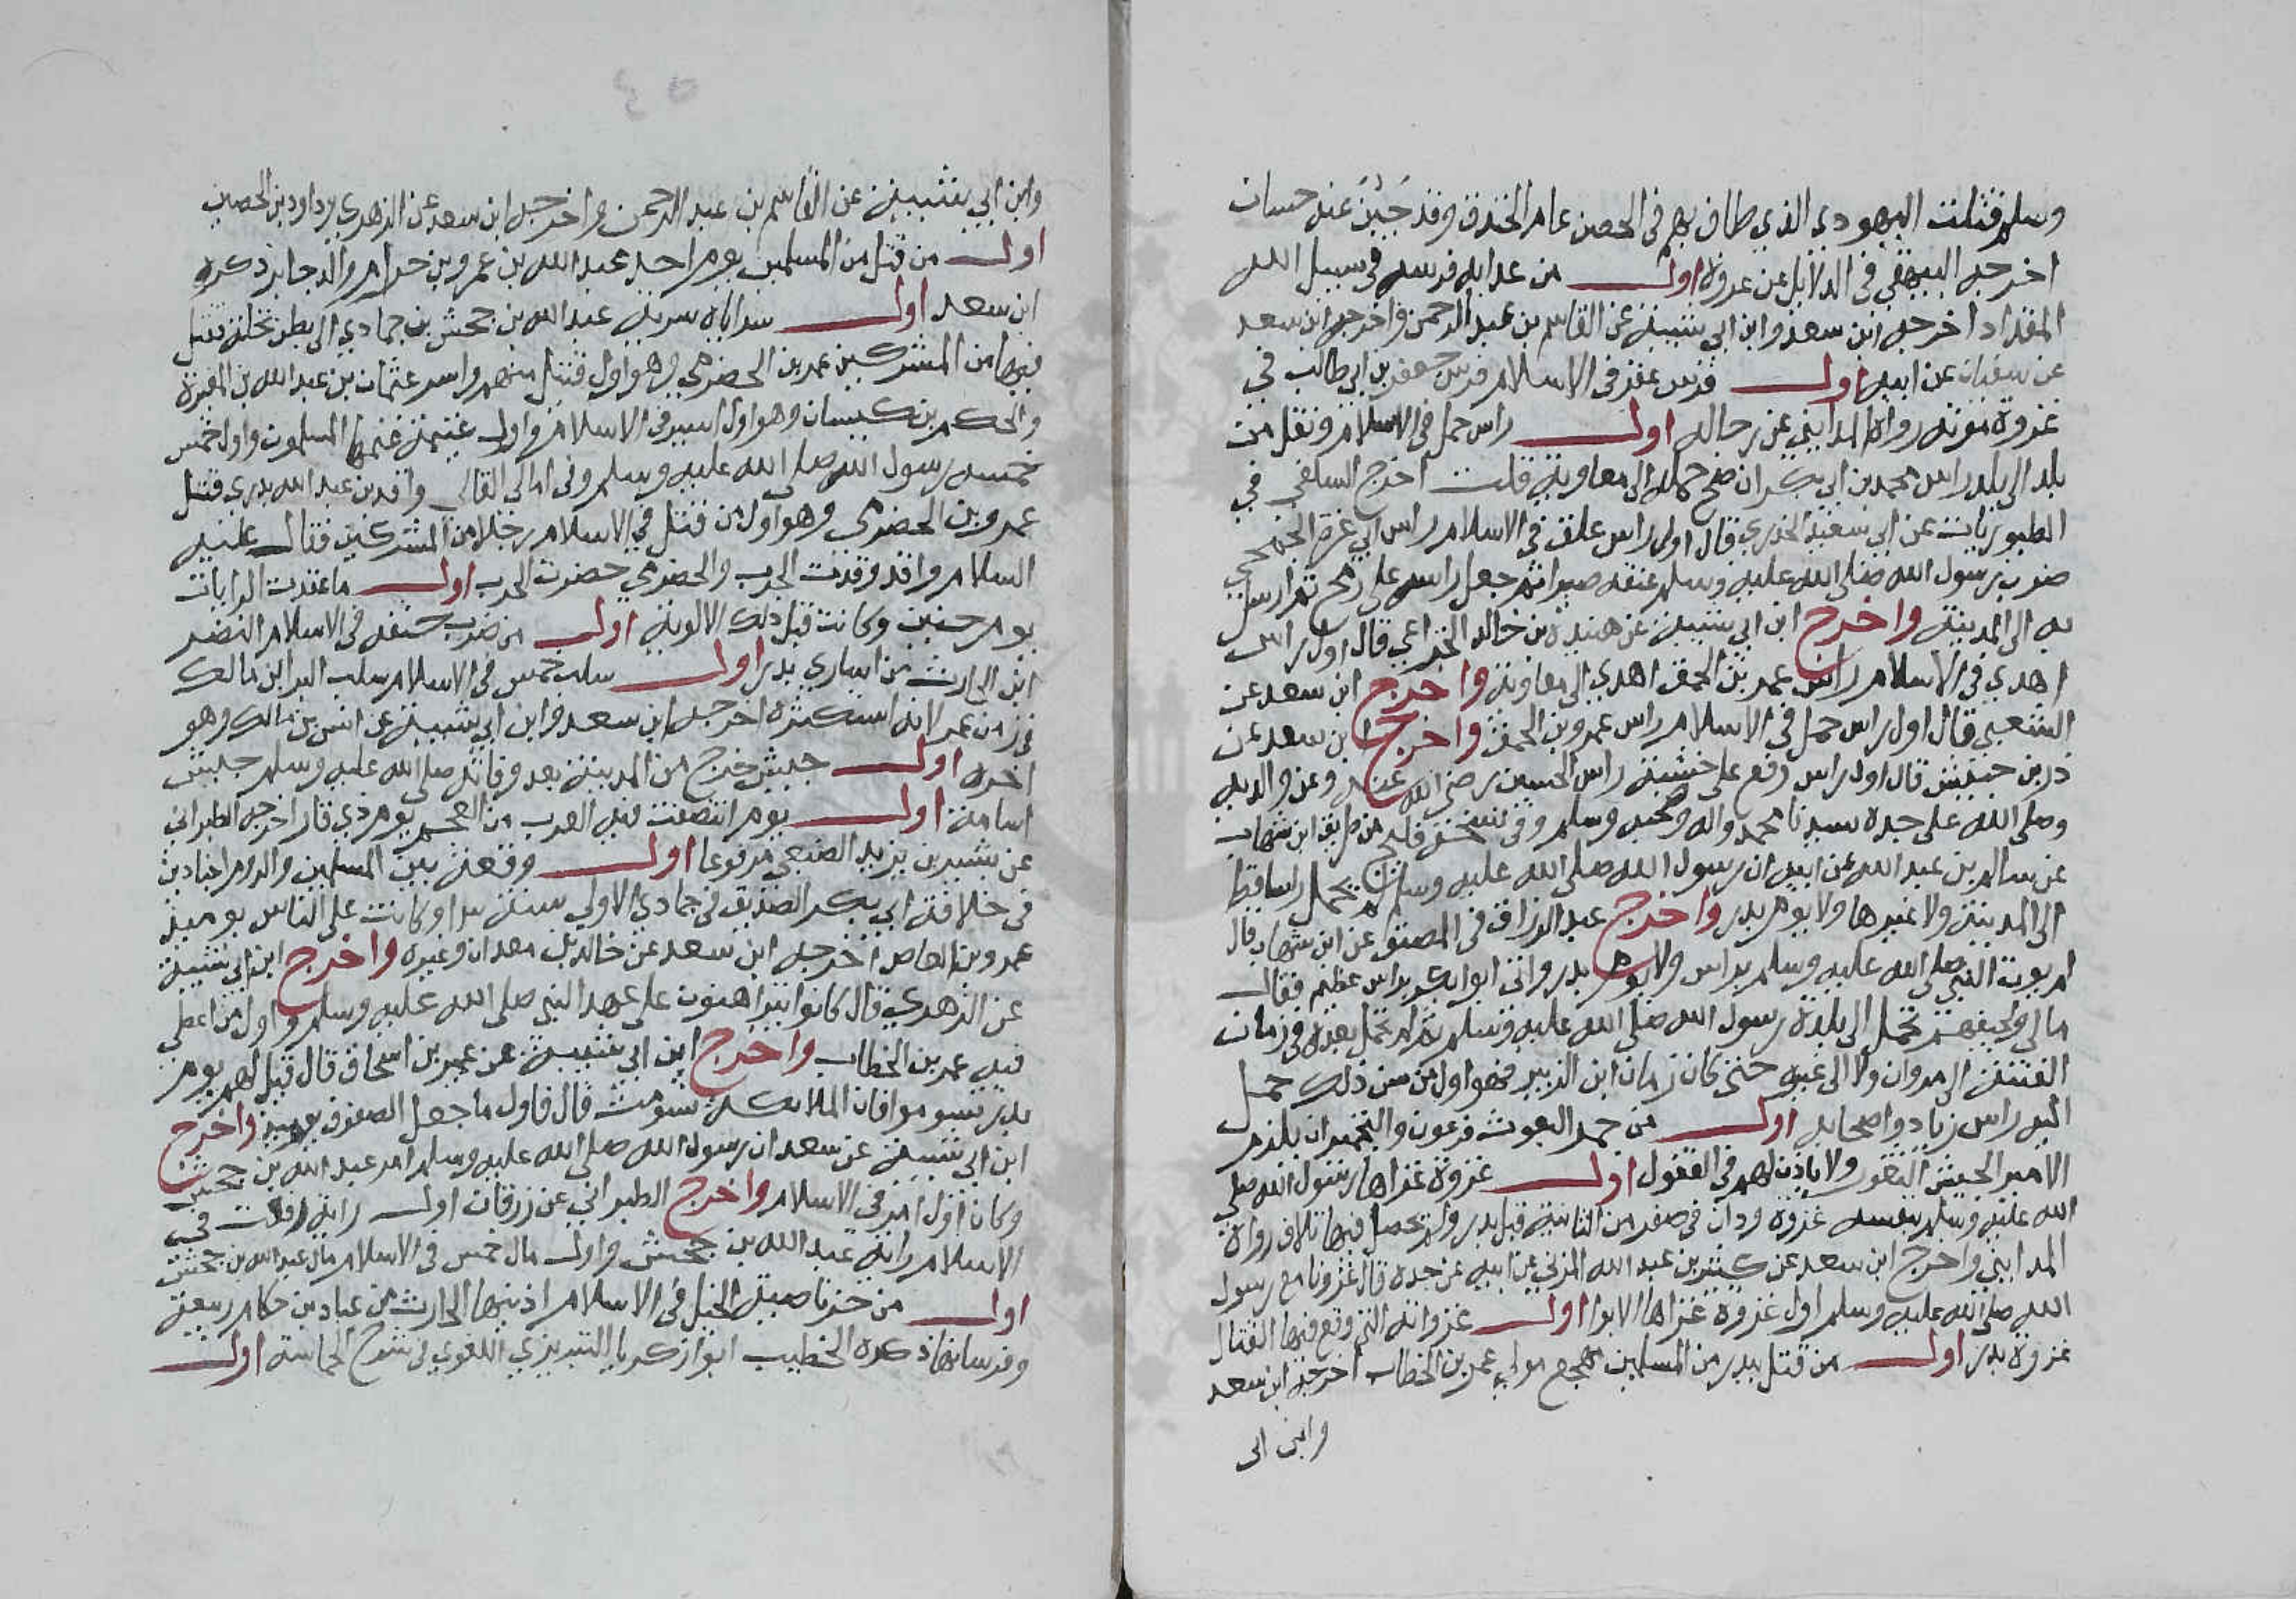 وسلم قتلت اليهودي الذي طاف بهم في الحصن عام الخندق وقد جَبُن عند حسان
اخرجه البيهقي في الدلايل عن عروة اول من عدا به فرسه في سبيل الله
المقداد اخرجه ابن سعد وابن ابي شيبة عن القاسم بن عبد الرحمن واخرجه ابن سعد
عن سفيان عن ابيه اول فرس عقر في الاسلام فرس جعفر بن ابي طالب في
غزوة موته رواه المدايني عن رجاله اول راس حمل في الاسلام ونقل من
بلد الى بلد راس محمد بن ابي بكر ان صح حمله الى معاوية قلت اخرج السلفي في
الطيوريات عن ابي سعيد الخدري قال اول راس علق في الاسلام راس ابي عزة الجمحي
ضرب رسول الله صلى الله عليه وسلم عنقه صبرا ثم جعل راسه على رمح ثم ارسل
به الى المدينة واخرج ابن ابي شيبة عن هنيدة بن خالد الخزاعي قال اول راس
اهدي في الاسلام راس عمر بن الحمق اهدي الى معاوية واخرج ابن سعد عن
الشعبي قال اول راس حمل في الاسلام راس عمرو بن الحمق واخرج ابن سعد عن
ذر بن حبيش قال اول راس رفع على خشبة راس الحسين رضي الله عنه وعن والديه
وصلى الله على جده سيدنا محمد واله وصحبه وسلم وفي من طريق ابن شهاب
عن سالم بن عبد الله عن ابيه ان رسول الله صلى الله عليه وسلم لم يحمل راسا قط
الى المدينة ولا غيرها ولا يوم بدر واخرج عبد الرزاق في المصنف عن ابن شهاب قال
لم يوت النبي صلى الله عليه وسلم براس ولا يوم بدر واتي ابو بكر براس عظيم فقال
مالي ولجيفهم تحمل الى بلدة رسول الله صلى الله عليه وسلم ثم لم تحمل بعده في زمان
الفتنة الى مروان ولا الى غيره حتى كان زمان ابن الزبير فهو اول من سن ذلك حمل
اليه راس زياد واصحابه اول من جمر البعوث فرعون والتجمير ان يلزم
الامير الجيش الثغور ولا ياذن لهم في القفول اول غزوة غزاها رسول الله صلى
الله عليه وسلم بنفسه غزوة ودان في صفر من الثانية قبل بدر ولم يحصل فيها تلاق رواه
المدايني واخرج ابن سعد عن كثير بن عبد الله المزني عن ابيه عن جده قال غزونا مع رسول
الله صلى الله عليه وسلم اول غزوة غزاها الابوا اول غزواته التي وقع فيها القتال
غزوة بدر اول من قتل ببدر من المسلمين مهجع مولى عمر بن الخطاب اخرجه ابن سعد
وابن ابى
وابن ابي شيبة عن القاسم بن عبد الرحمن واخرجه ابن سعد عن الزهري وداود بن الحصين
اول من قتل من المسلمين يوم احد عبد الله بن عمرو بن حرام والد جابر ذكره
ابن سعد اول سراياه سرية عبد الله بن جحش بن جمادي الى بطن نخلة قتل
فيها من المشركين عمر بن الحضرمي وهو اول قتيل منهم واسر عثمان بن عبد الله بن المغيرة
والحكم بن كيسان وهو اول اسير في الاسلام واول غنيمة غنمها المسلمون واول خمس
خمسه رسول الله صلى الله عليه وسلم وفي امالي القالي واقد بن عبد الله بدري قتل
عمرو بن الحضرمي وهو اول من قتل في الاسلام رجلا من المشركين فقال عليه
السلام واقد وقدت الحرب والحضرمي حضرت الحرب اول ما عقدت الرايات
يوم حنين وكانت قبل ذلك الالوية اول من ضرب عنقه في الاسلام النضر
ابن الحارث من اساري بدر اول سلب خمس في الاسلام سلب البرا بن مالك
في زمن عمر لانه استكثره اخرجه ابن سعد وابن ابي شيبة عن انس بن مالك وهو
اخوه اول جيش خرج من المدينة بعد وفاته صلى الله عليه وسلم جيش
اسامة اول يوم انتصفت فيه العرب من العجم يوم ذي قار اخرجه الطبراني
عن بشير بن يزيد الضبعي مرفوعا اول وقعة بين المسلمين والروم اجنادين
في خلافة ابي بكر الصديق في جمادي الاولى سنة وكانت على الناس يوميذ
عمرو بن العاص اخرجه ابن سعد عن خالد بن معدان وغيره واخرج ابن ابي شيبة
عن الزهري قال كانوا يتراهنون على عهد النبي صلى الله عليه وسلم واول من اعطى
فيه عمر بن الخطاب واخرج ابن ابي شيبة عن عمير بن اسحاق قال قيل لهم يوم
بدر تسوموا فان الملايكة تسومت قال فاول ما جعل الصوف يوميذ واخرج
ابن ابي شيبة عن سعد ان رسول الله صلى الله عليه وسلم امر عبد الله بن جحش
وكان اول امير في الاسلام واخرج الطبراني عن زر قال اول راية رفعت في
الاسلام راية عبد الله بن جحش واول مال خمس في الاسلام مال عبد الله بن جحش
اول من جز ناصية الخيل في الاسلام اذنبها الحارث بن عباد بن حكام ربيعة
وفرسانها ذكره الخطيب ابو ازكريا التبريزي اللغوي في شرح الحماسة اول